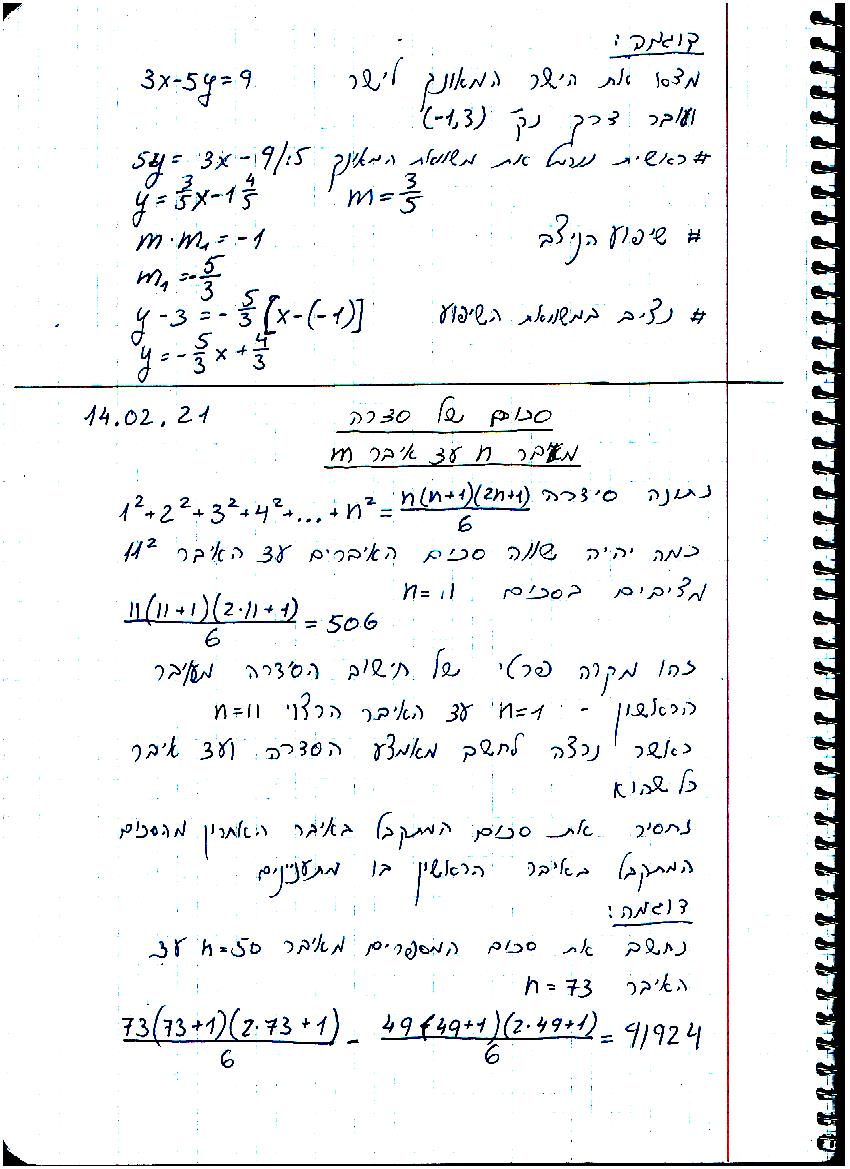 דוגמה:
מצאו את הישר המאונך לישר 3x-5y=9
ועובר דרך נק' (-1,3)
#ראשית נרמל את משוואת המאונך 5y= 3x-9/:5
y= 3/5 x-1 4/5 m= 3/5
# שיפוע הניצב m·m₁=-1
m₁=-5/3
# נציב במשוואת השיפוע y-3=-5/3[x-(-1)]
y=-5/3 x+4/3
14.02.21 סכום של סדרה
מאיבר n עד איבר m
נתונה סידרה 1²+2²+3²+4²+...+n²= n(n+1)(2n+1)/6
כמה יהיה שווה סכום האיברים עד האיבר 11²
מציבים בסכום n=11
11(11+1)(2·11+1)/6 = 506
זהו מקרה פרטי של חישוב הסידרה מאיבר
הראשון - n=1 עד האיבר הרצוי n=11
כאשר נרצה לחשב מאמצע הסדרה ועד איבר
כל שהוא
נחסיר את סכום המתקבל באיבר האחרון מהסכום
המתקבל באיבר הראשון בו מתעניינים
דוגמה:
נחשב את סכום המספרים מאיבר n=50 עד
האיבר n=73
73(73+1)(2·73+1)/6 - 49(49+1)(2·49+1)/6 = 91924